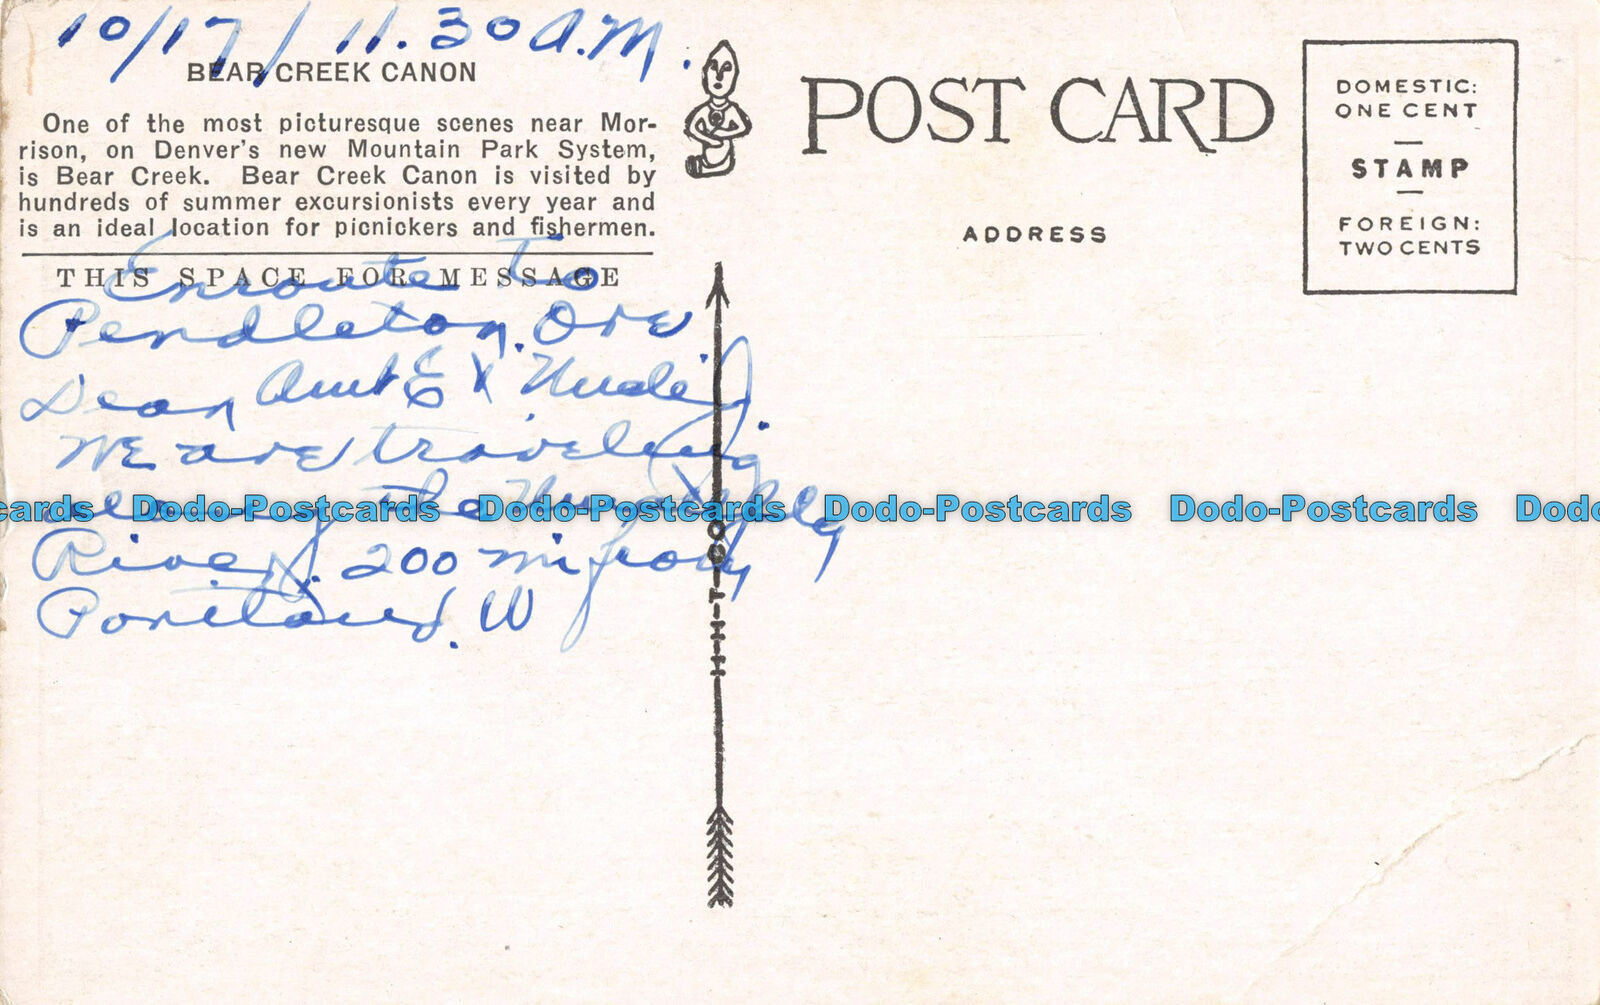 10/17/ 11.30 A.M.
BEAR CREEK CANON
One of the most picturesque scenes near Mor-
rison, on Denver's new Mountain Park System,
is Bear Creek. Bear Creek Canon is visited by
hundreds of summer excursionists every year and
is an ideal location for picnickers and fishermen.
THIS SPACE FOR MESSAGE
Enroute to
Pendleton, Ore
Dear Aunt E &
We are traveling
along the
River. 200 mi from
Portland. W
POST CARD
ADDRESS
DOMESTIC:
ONE CENT
STAMP
FOREIGN:
TWO CENTS
H-H-T-CO
cards Dodo-Postcards Dodo-Postcards Dodo-Postcards Dodo-Postcards Dodo